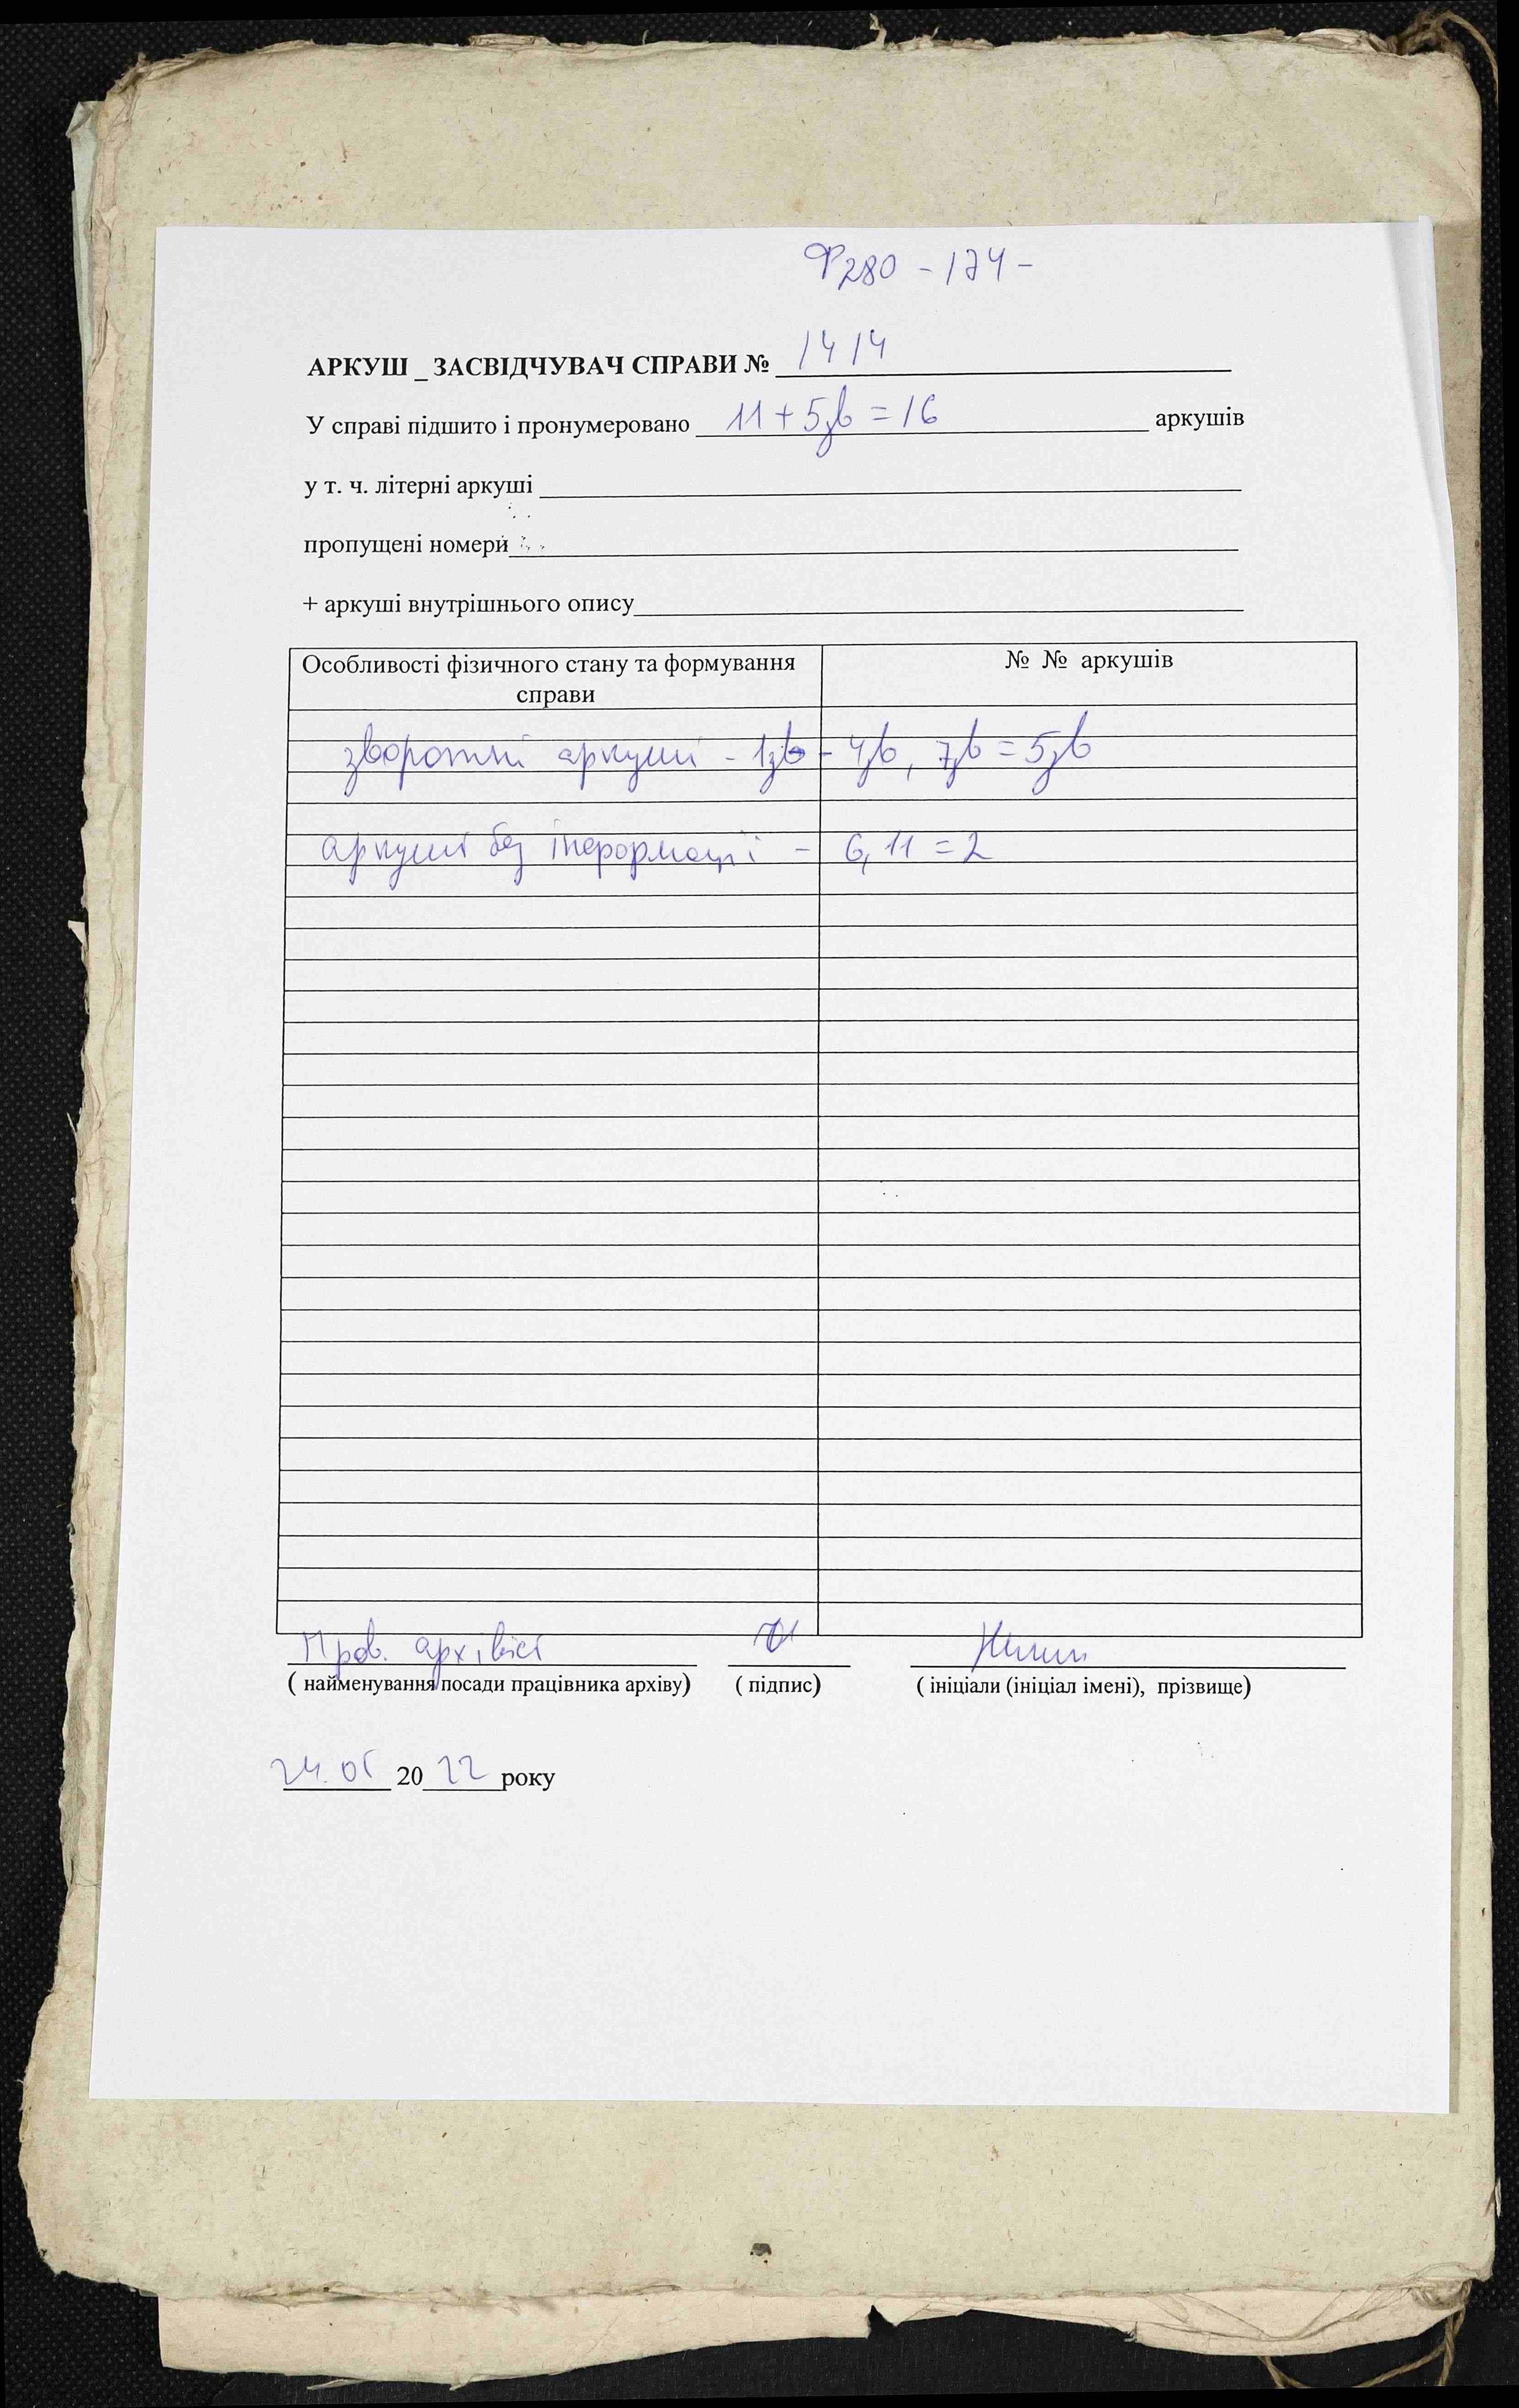 Ф280 - 174 -
АРКУШ _ ЗАСВІДЧУВАЧ СПРАВИ № 1414
У справі підшито і пронумеровано 11 + 5зв = 16 аркушів
у т. ч. літерні аркуші
пропущені номери
+ аркуші внутрішнього опису
Особливості фізичного стану та формування справи
№ № аркушів
зворотні аркуші - 1зв - 4зв, 7зв = 5зв
аркуші без інформації - 6, 11 = 2
Пров. архівіст
( найменування посади працівника архіву) ( підпис) ( ініціали (ініціал імені), прізвище)
24.05 2022 року